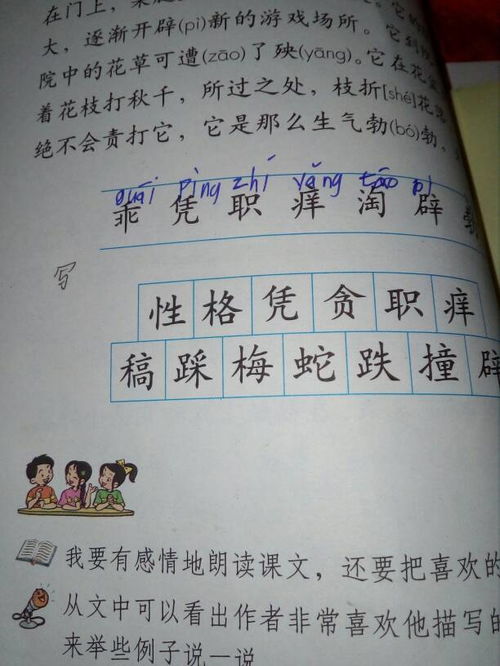 在门上，
大，逐渐开辟(pì)新的游戏场所。它到
院中的花草可遭(zāo)了殃(yāng)。它在花
着花枝打秋千，所过之处，枝折[shé]花
绝不会责打它，它是那么生气勃(bó)勃，
guāi píng zhí yǎng táo pì
乖 凭 职 痒 淘 辟
写
性 格 凭 贪 职 痒
稿 踩 梅 蛇 跌 撞 辟
我要有感情地朗读课文，还要把喜欢的
从文中可以看出作者非常喜欢他描写的
来举些例子说一说